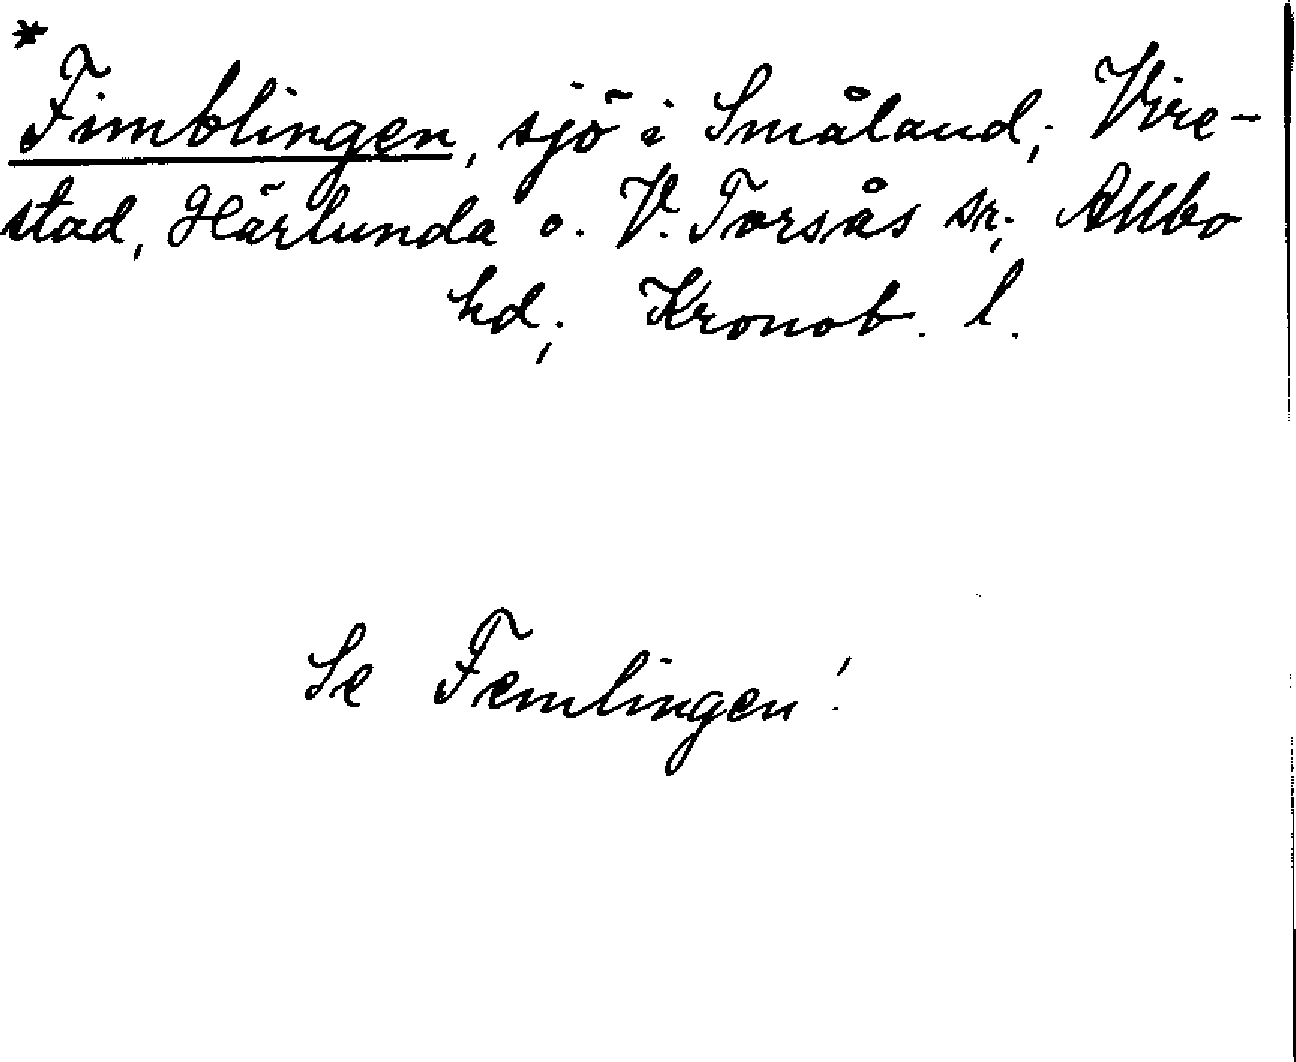 *
Fimblingen, sjö i Småland; Vire-
stad, Härlunda o. V. Torsås sn; Allbo
hd; Kronob. l.
Se Femlingen!